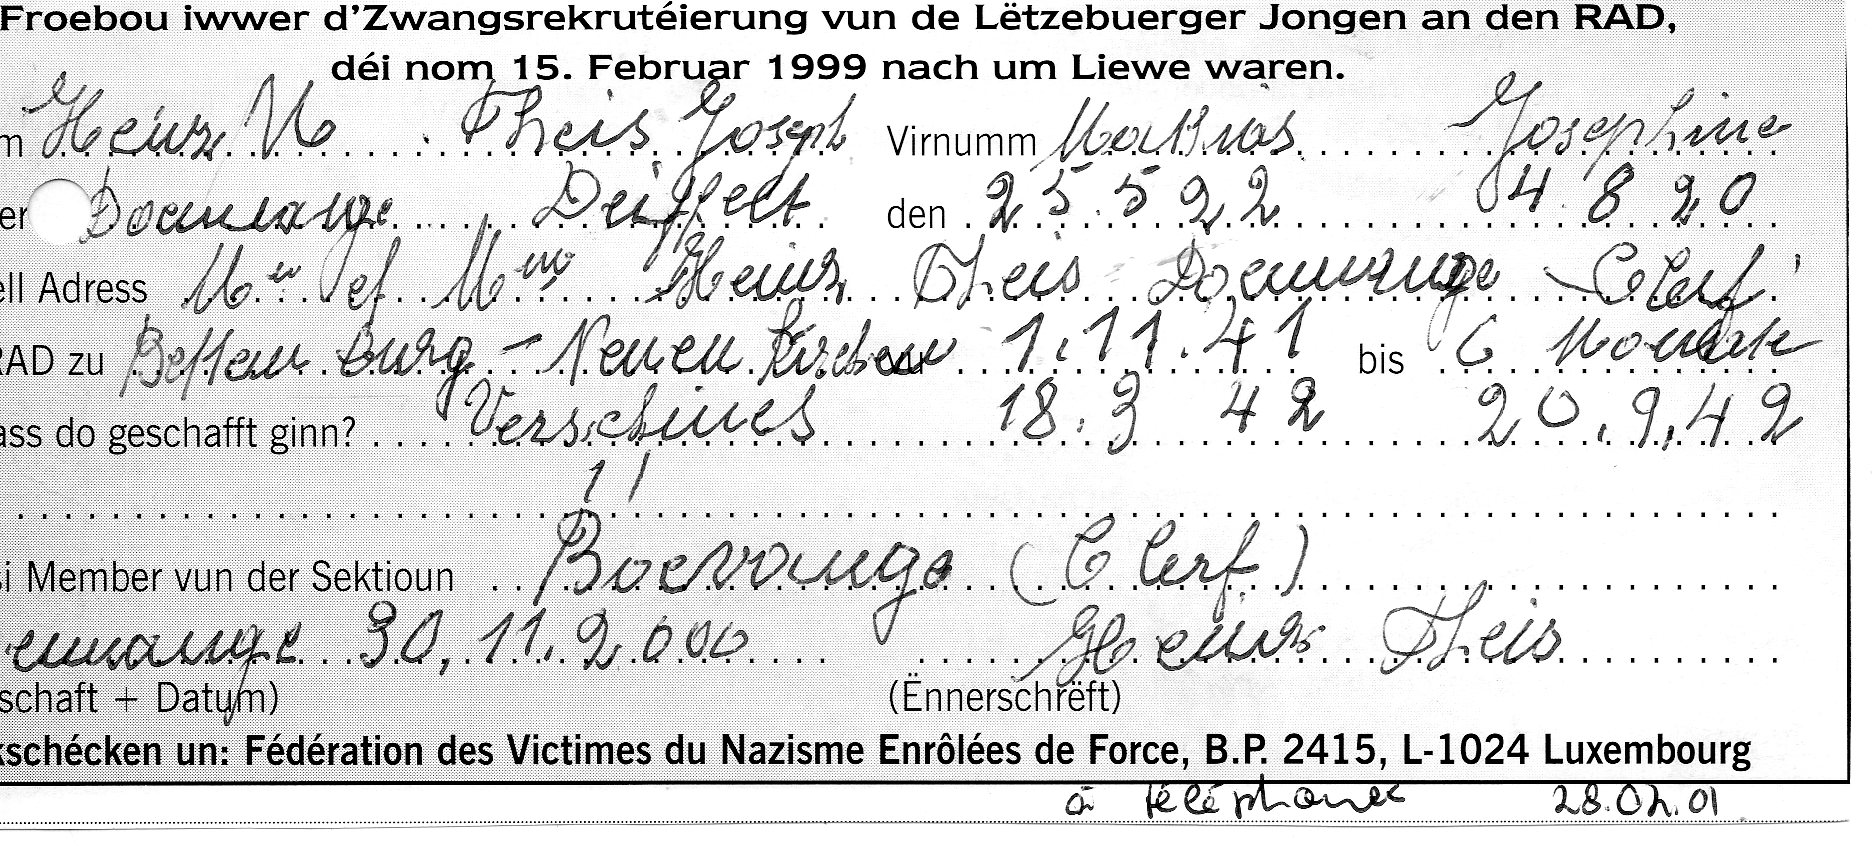 Froebou iwwer d'Zwangsrekrutéierung vun de Lëtzebuerger Jongen an den RAD,
déi nom 15. Februar 1999 nach um Liewe waren.
m Heinz M Theis Joseph Virnumm Mathias Josephine
er Deiffelt den 25.5 22 4 8 20
ell Adress Mr et Mme Heinz Theis Doennange Clerf
RAD zu Bettemburg - Neuenkirchen vu 1.11.41 bis 6 Monate
ass do geschafft ginn? Verschines 18.3 42 20.9.42
11
i Member vun der Sektioun Boevange (Clerf)
ennange 30.11.2000 Heinz Theis
schaft + Datum) (Ënnerschrëft)
kschécken un: Fédération des Victimes du Nazisme Enrôlées de Force, B.P. 2415, L-1024 Luxembourg
a téléphoné 28.02.01